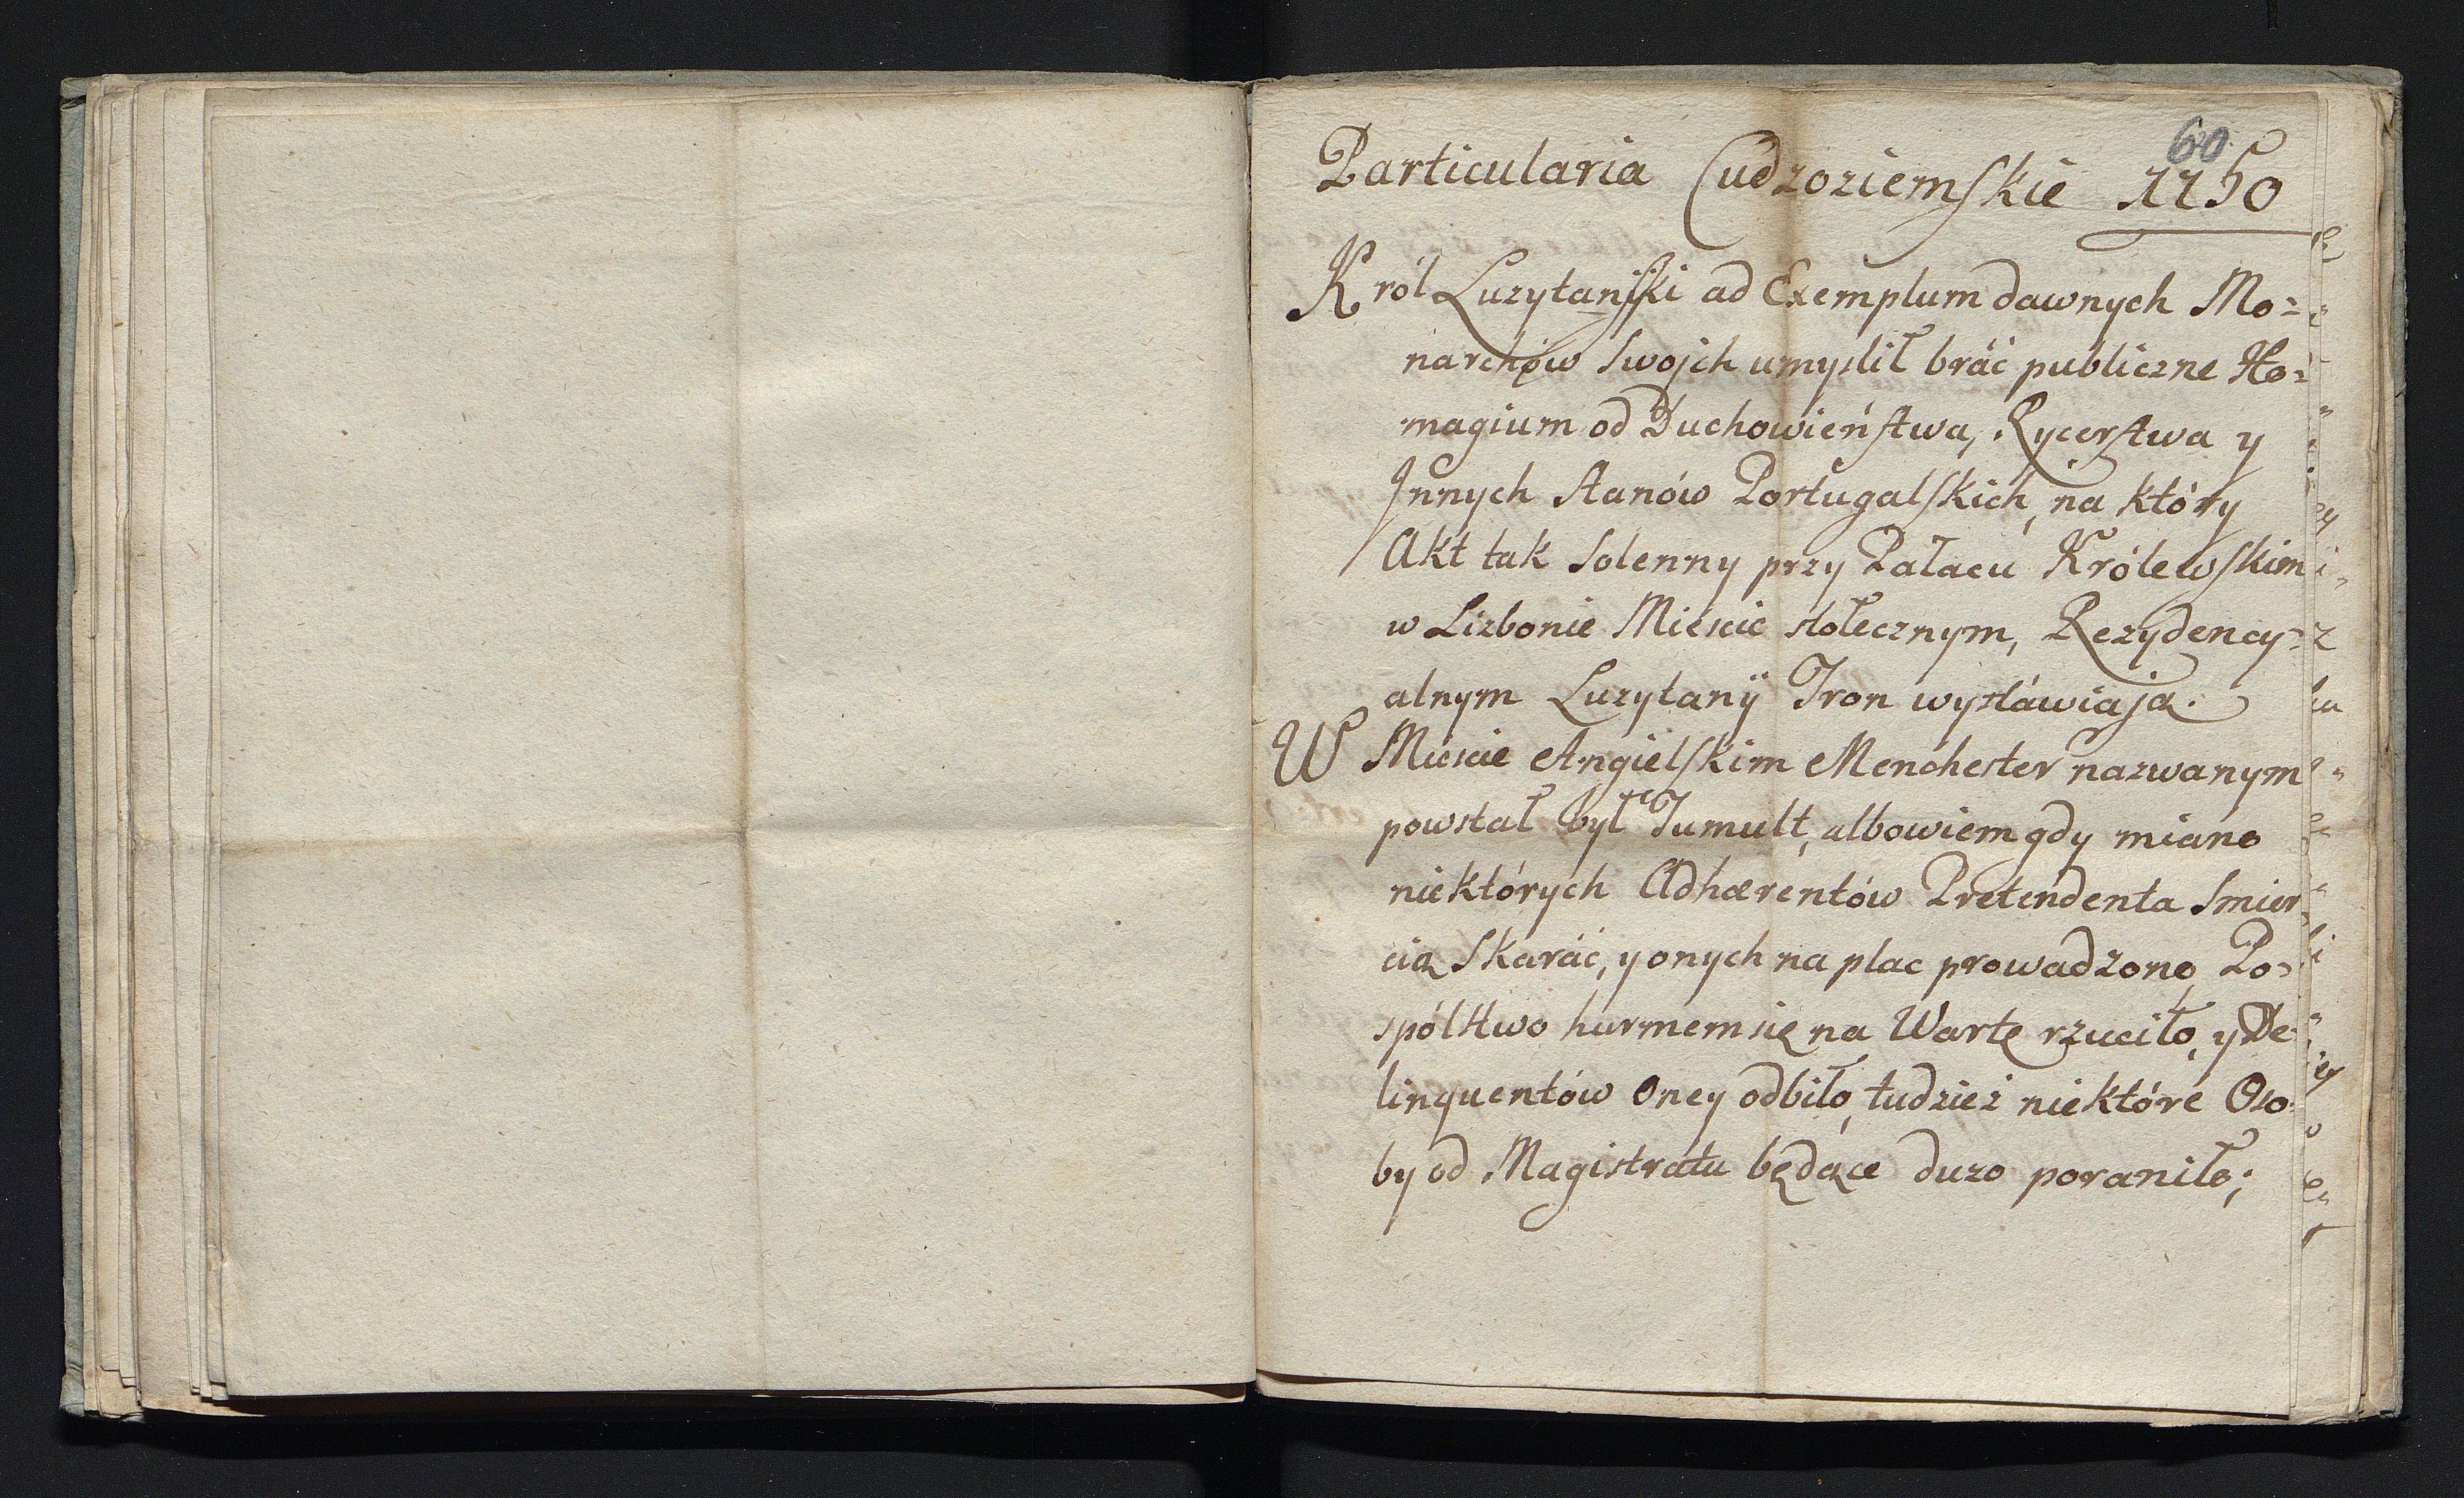 60
Particularia Cudzoziemskie 1750
Król Luzytański ad Exemplum dawnych Mo=
narchów Swojch umyslił bráć publiczne Ho=
magium od Duchowieństwa, Rycerstwa y
Jnnych Stanów Portugalskich, na który
Akt tak Solenny przy Pałacu Królewskim
w Lizbonie Mieście stołecznym, Rezydency=
alnym Luzytanÿ Tron wystáwiają.
W Mieście Angielskim Menchester nazwanym
powstał był Tumult, albowiem gdy miano
niektórych Adhærentów Pretendenta Smier
cią Skaráć, y onych na plac prowadzono, Po=
spólstwo hurmem się na Wartę rzuciło, y De=
linquentów Oney odbiło, tudzież niektóre Oso
by od Magistratu będące duzo poraniło;